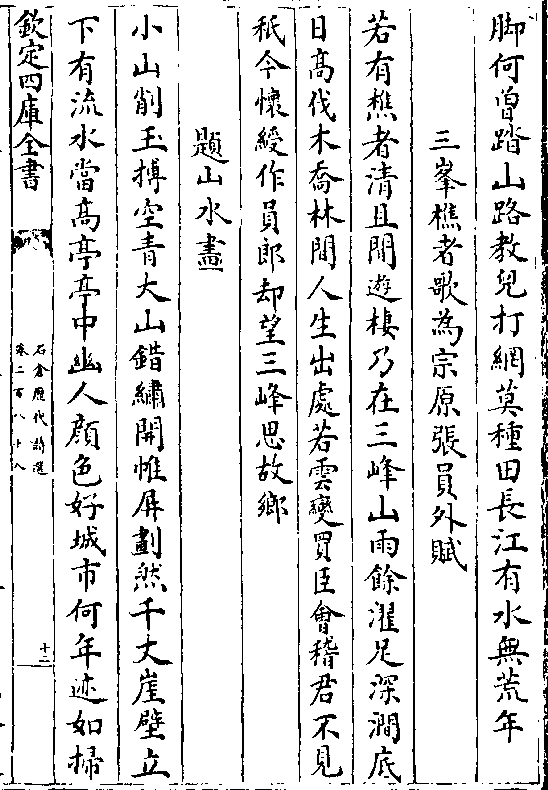 脚何曾踏山路教兒打網莫種田長江有水無荒年
三峯樵者歌為宗原張員外賦
若有樵者清且閒遊棲乃在三峰山雨餘濯足深澗底
日髙伐木喬林間人生出處若雲變買臣會稽君不見
秖今懷綬作員郎却望三峰思故鄉
題山水畫
小山削玉摶空青大山錯繡開帷屏劃然千丈崖壁立
下有流水當髙亭亭中幽人顔色好城市何年迹如掃
欽定四庫全書
石倉歷代詩選
卷二百八十八
十二